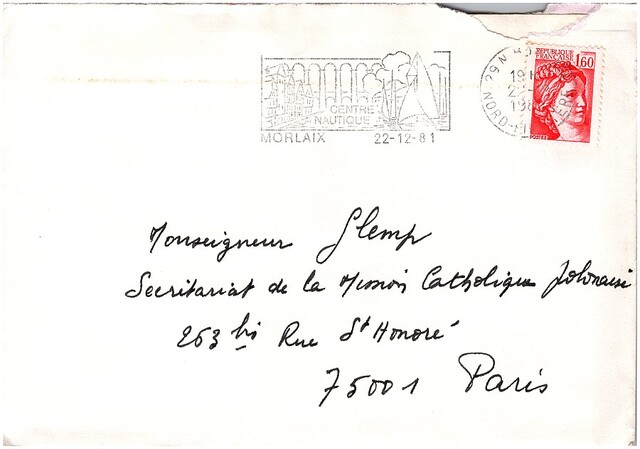 CENTRE
NAUTIQUE
MORLAIX 22-12-81
RÉPUBLIQUE
FRANÇAISE 1,60
29 N
19H
NORD-FI ERE
POSTES
Monseigneur Glemp
Secritariat de la Mission Catholique Polonaise
263 bis Rue St Honoré
75001 Paris